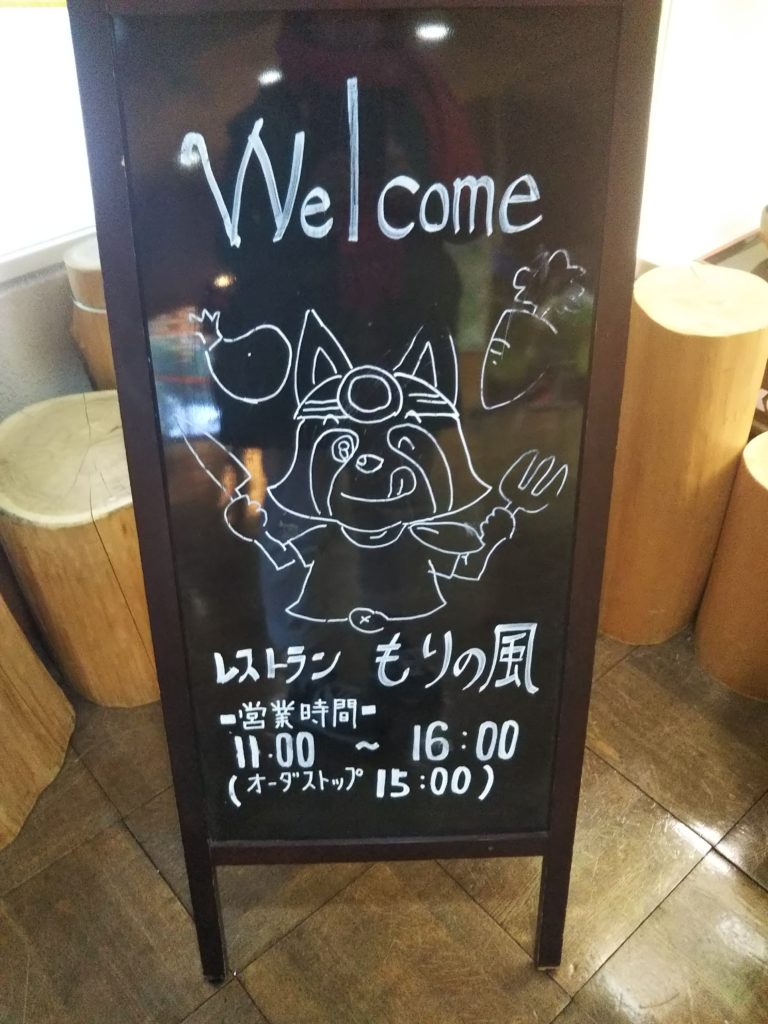 Welcome
レストラン もりの風
-営業時間-
11:00 ~ 16:00
(オーダストップ 15:00)